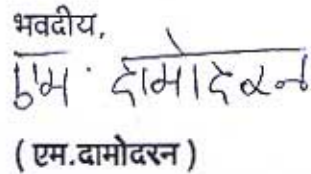 भवदीय,
एम. दामोदरन
(एम.दामोदरन)